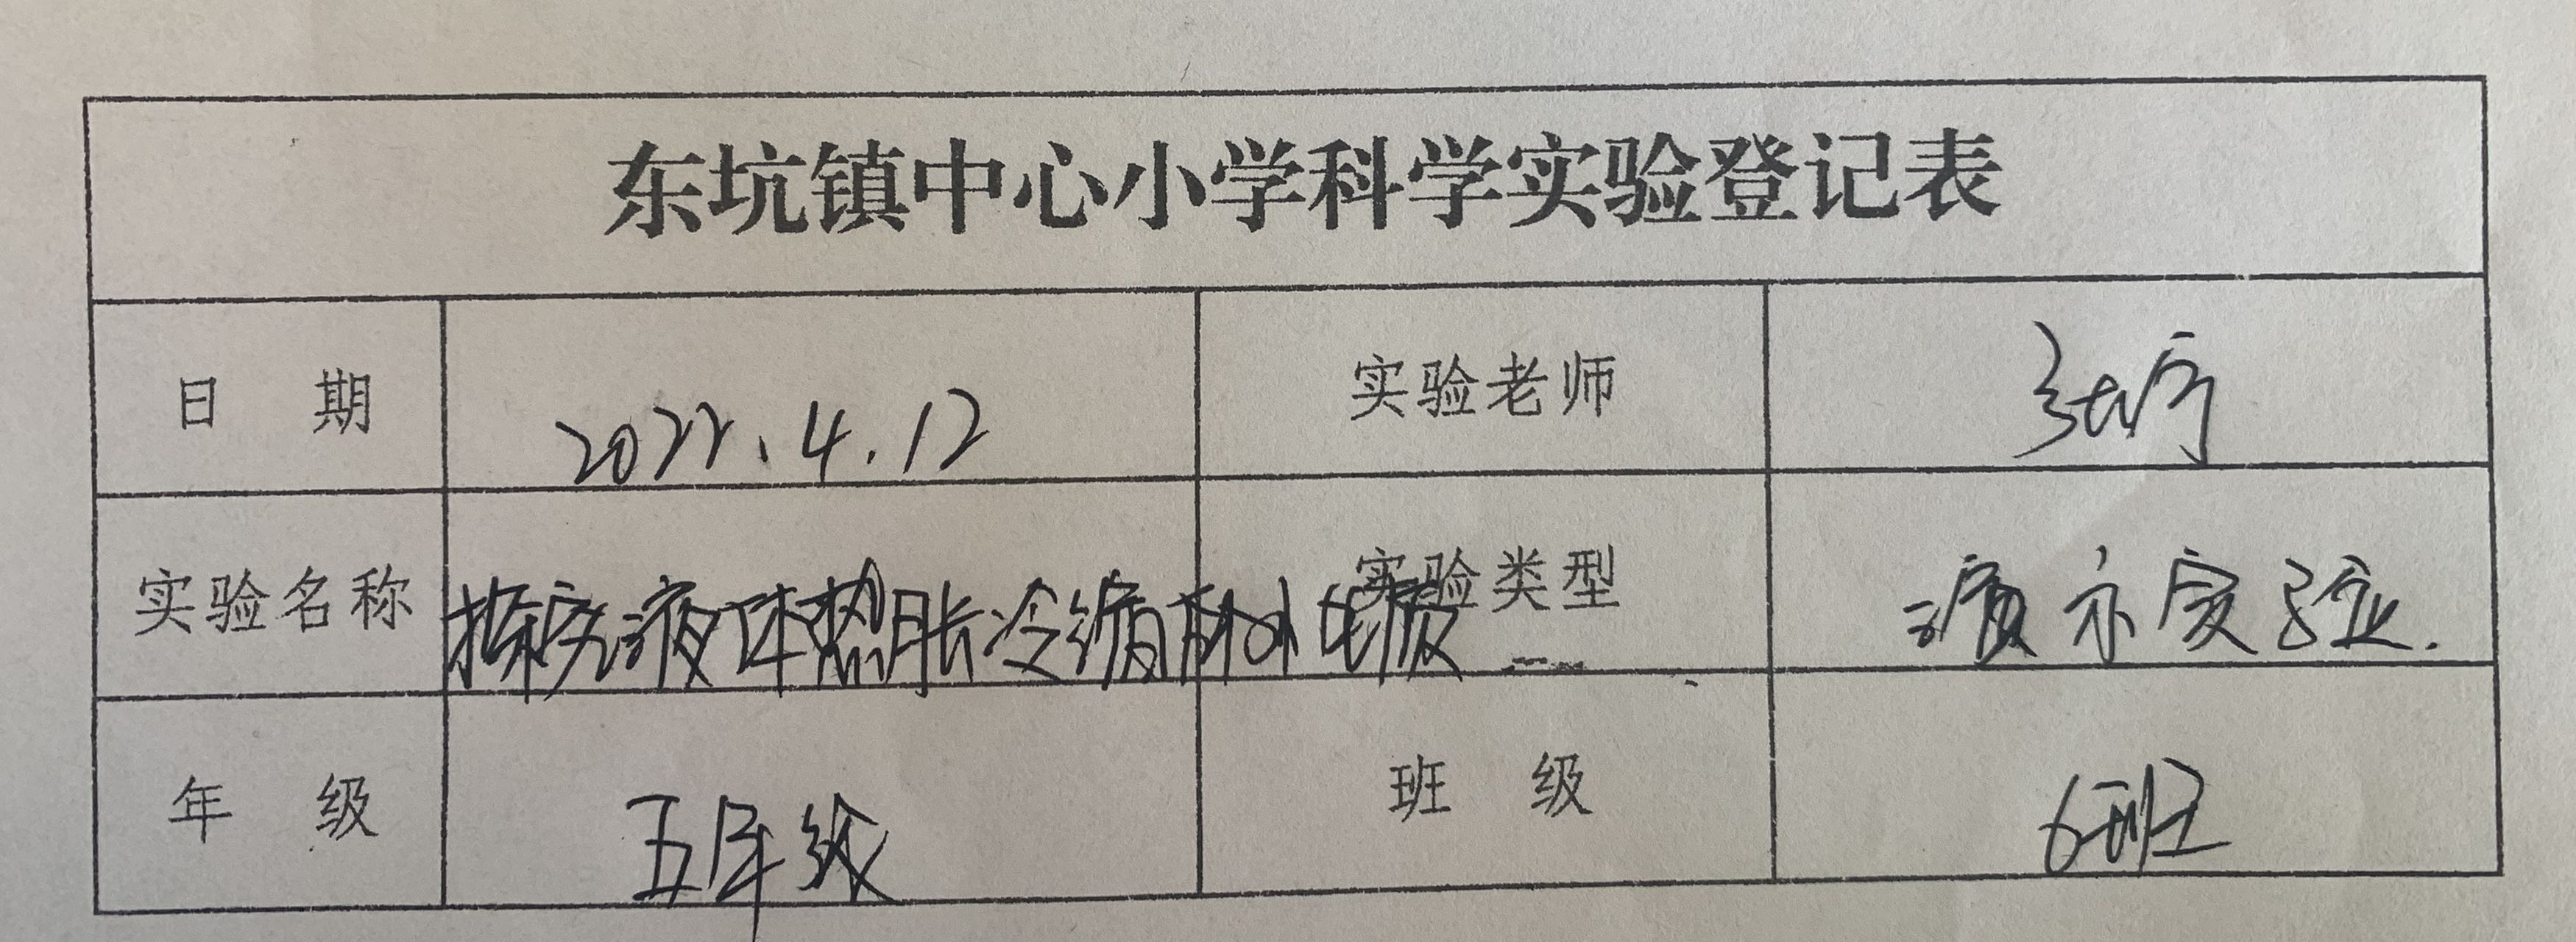 东坑镇中心小学科学实验登记表
日 期 2022.4.12 实验老师
实验名称 探究液体热胀冷缩的 实验类型 演示实验.
年 级 五年级 班 级 6班